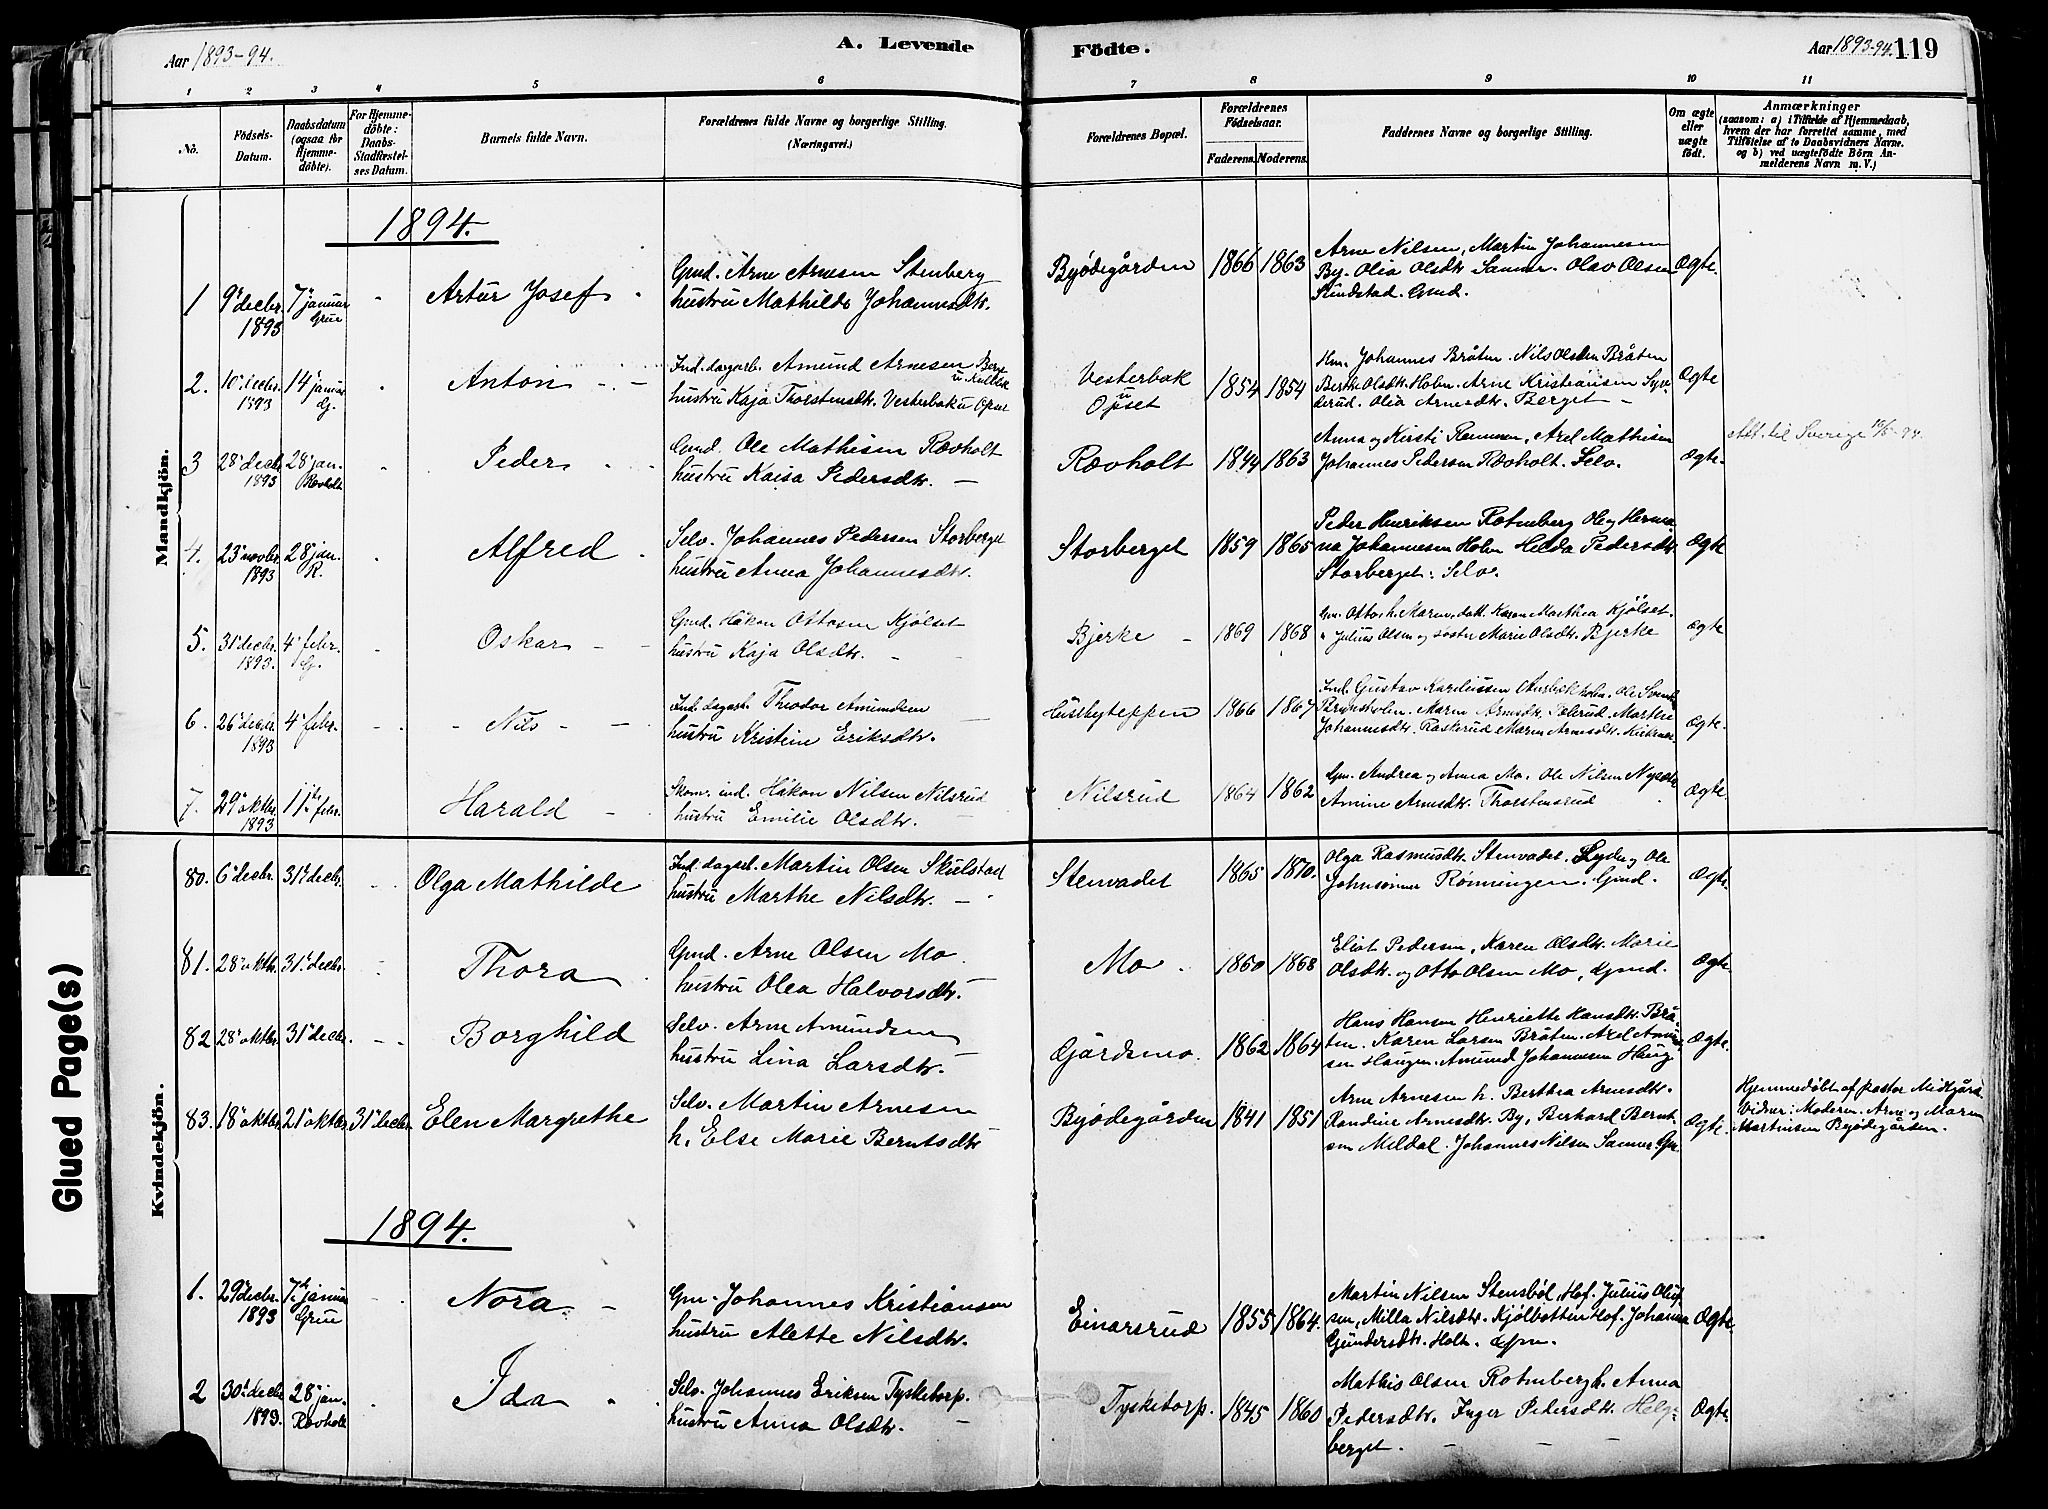 Aar 1893-94.
A. Levende
Födte.
Aar 1893-94. 119
1 2 3 4 5 6 7 8 9 10 11
No.
Födsels-Datum.
Daabsdatum (ogsaa for Hjemmedöbte).
For Hjemmedöbte: Daabs-Stadfæstelses Datum.
Barnets fulde Navn.
Forældrenes fulde Navne og borgerlige Stilling.
(Næringsvei.)
Forældrenes Bopæl.
Forældrenes Födselsaar.
Faderens. Moderens.
Faddernes Navne og borgerlige Stilling.
Om ægte eller uægte födt.
Anmærkninger
(saasom: a) i Tilfælde af Hjemmedaab,
hvem der har forrettet samme, med
Tilföielse af to Daabsvidners Navne.
og b) ved uægtefödte Börn An-
melderens Navn m. V.)
Mandkjön.
1894.
1 9de decbr. 1893 7de januar Grue
Artur Josef
Gmd. Arne Arnesen Stenberg
hustru Mathilde Johannesdtr.
Byødegården 1866 1863
Arne Nilsen, Martin Johannesen
By. Olia Olsdtr Sanner. Olav Olsen
Skindstad. Gmd.
Ægte
2. 10de decbr. 1893 14de januar G.
Anton
Ind. dagarb. Amund Arnesen Berge
hustru Kaja Thorstensdtr. Vesterbak u Opset
Vesterbak
u
Opset
1854 1854
Hm. Johannes Bråten. Nils Olsen Bråten
Berthe Olsdtr. Holm. Arne Kristiansen Syve-
derud. Olia Arnesdtr. Berget
Ægte
3 28de decbr 1893 28de jan. Røvholt
Peder
Gmd. Ole Mathisen Røvholt
hustru Kaisa Pedersdtr.
Røvholt 1844 1863
Anna og Kirsti Rammen, Axel Mathisen
Johannes Pedersen Røvholt. Selv.
Ægte.
Att. til Sverige
4. 23de novbr. 1893 28de jan. R.
Alfred
Selv. Johannes Pedersen Storberget
hustru Anna Johannesdtr.
Storberget 1859 1865
Peder Henriksen Rotnberg Ole og Herma-
na Johannesen Holm Helda Pedersdtr.
Storberget. Selv.
Ægte
5. 31te decbr. 1893. 4de febr. G.
Oskar
Gmd. Håkon Ottosen Kjölset
hustru Kaja Olsdtr.
Bjerke 1869 1868
Gm. Otto, h. Maren, datt. Karen Marthea Kjölset.
Julius Olsen og søster Marie Olsdtr. Bjerke
Ægte
6. 26de decbr. 1893 4de febr.
Nils
Ind. dagarb. Theodor Amundsen
hustru Kristine Eriksdtr.
Husbyteppen 1866 1867
Ind. Gustav Karelius­sen
Johannesdtr. Raskerud Maren Arnesdtr.
Ægte.
7. 29de oktbr. 1893 11te febr.
Harald
Skom. ind. Håkon Nilsen Nilsrud
hustru Emilie Olsdtr.
Nilsrud 1864 1862
Gm. Andrea og Anna Mo. Ole Nilsen
Amine Arnesdtr. Thorstensrud
Ægte.
Kvindekjön.
80. 6te decbr. 31te decbr.
Olga Mathilde
Ind. dagarb. Martin Olsen Skulstad
hustru Marthe Nilsdtr.
Stenvadet 1865 1870.
Olga Rasmusdtr. Stenvadet. Syder og Ole
Johnsønner Rønningen. Gmd.
Ægte.
81. 28de oktbr. 31te decbr.
Thora
Gmd. Arne Olsen Mo.
hustru Olea Halvorsdtr.
Mo. 1860 1868
Eliot Pedersen, Karen Olsdtr. Marie
Olsdtr. og Otto Olsen Mo, Gmd.
Ægte
82 28de oktbr. 31te decbr.
Borghild
Selv. Arne Amundsen
hustru Lina Larsdtr.
Gårdsmo. 1862 1864
Hans Hansen Henriette Hansdtr. Brå-
ten. Karen Larsen Bråten. Axel Arne-
sen Haugen. Amund Johannesen Haug
Ægte.
83. 18de oktbr. 21de oktbr. 31te decbr.
Elen Margrethe
Selv. Martin Arnesen
h. Else Marie Berntsdtr
Byødegården 1841 1851
Arne Arnesen h. Berthea Arnesdtr.
Randine Arnesdtr. By, Berhard Bernt-
sen Mildal. Johannes Nilsen Sanner. Gm
Ægte.
Hjemmedøbt af pastor Midgård
Vidner: Moderen. Arne og Maren
Martinsen Byødegården.
1894.
1. 29de decbr. 1893 7de januar Grue
Nora
Gm. Johannes Kristiansen
hustru Alette Nilsdtr.
Einarsrud 1855 1864.
Martin Nilsen Stensbøl, Hof. Julius Oluf-
sen, Milla Nilsdtr. Kjølbotten Hof. Johanna
Gundersdtr. Holt. Gm.
Ægte.
2 30te decbr 1893. 28de jan. Røvholt
Ida
Selv. Johannes Eriksen Tysketorp.
hustru Anna Olsdtr.
Tysketorp. 1845 1860
Mathis Olsen Rotnberg h. Anna
Pedersdtr. Inger Pedersdtr. Helge-
berget.
Ægte
Glued Page(s)